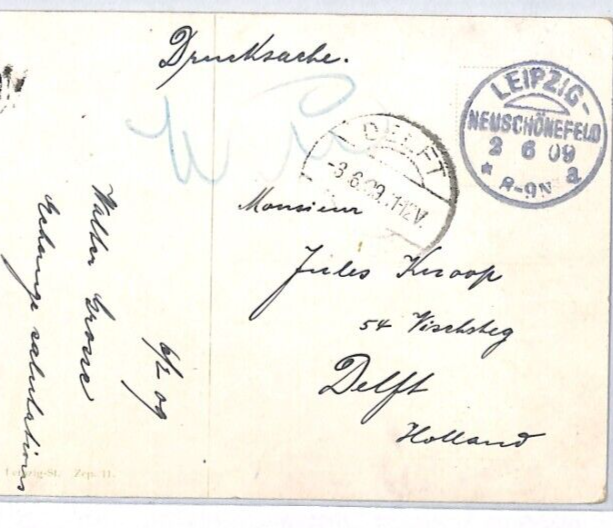 Drucksache.
LEIPZIG-
NEUSCHÖNEFELD
2 6 09
* 8-9N a
DELFT
-3.6.09.11-12V.
Monsieur
Jules Knoop
54 Vischsteg
Delft
Holland
6/2 09
Walter Grosse
Echange salutations
Leipzig-St. Zep. 11.